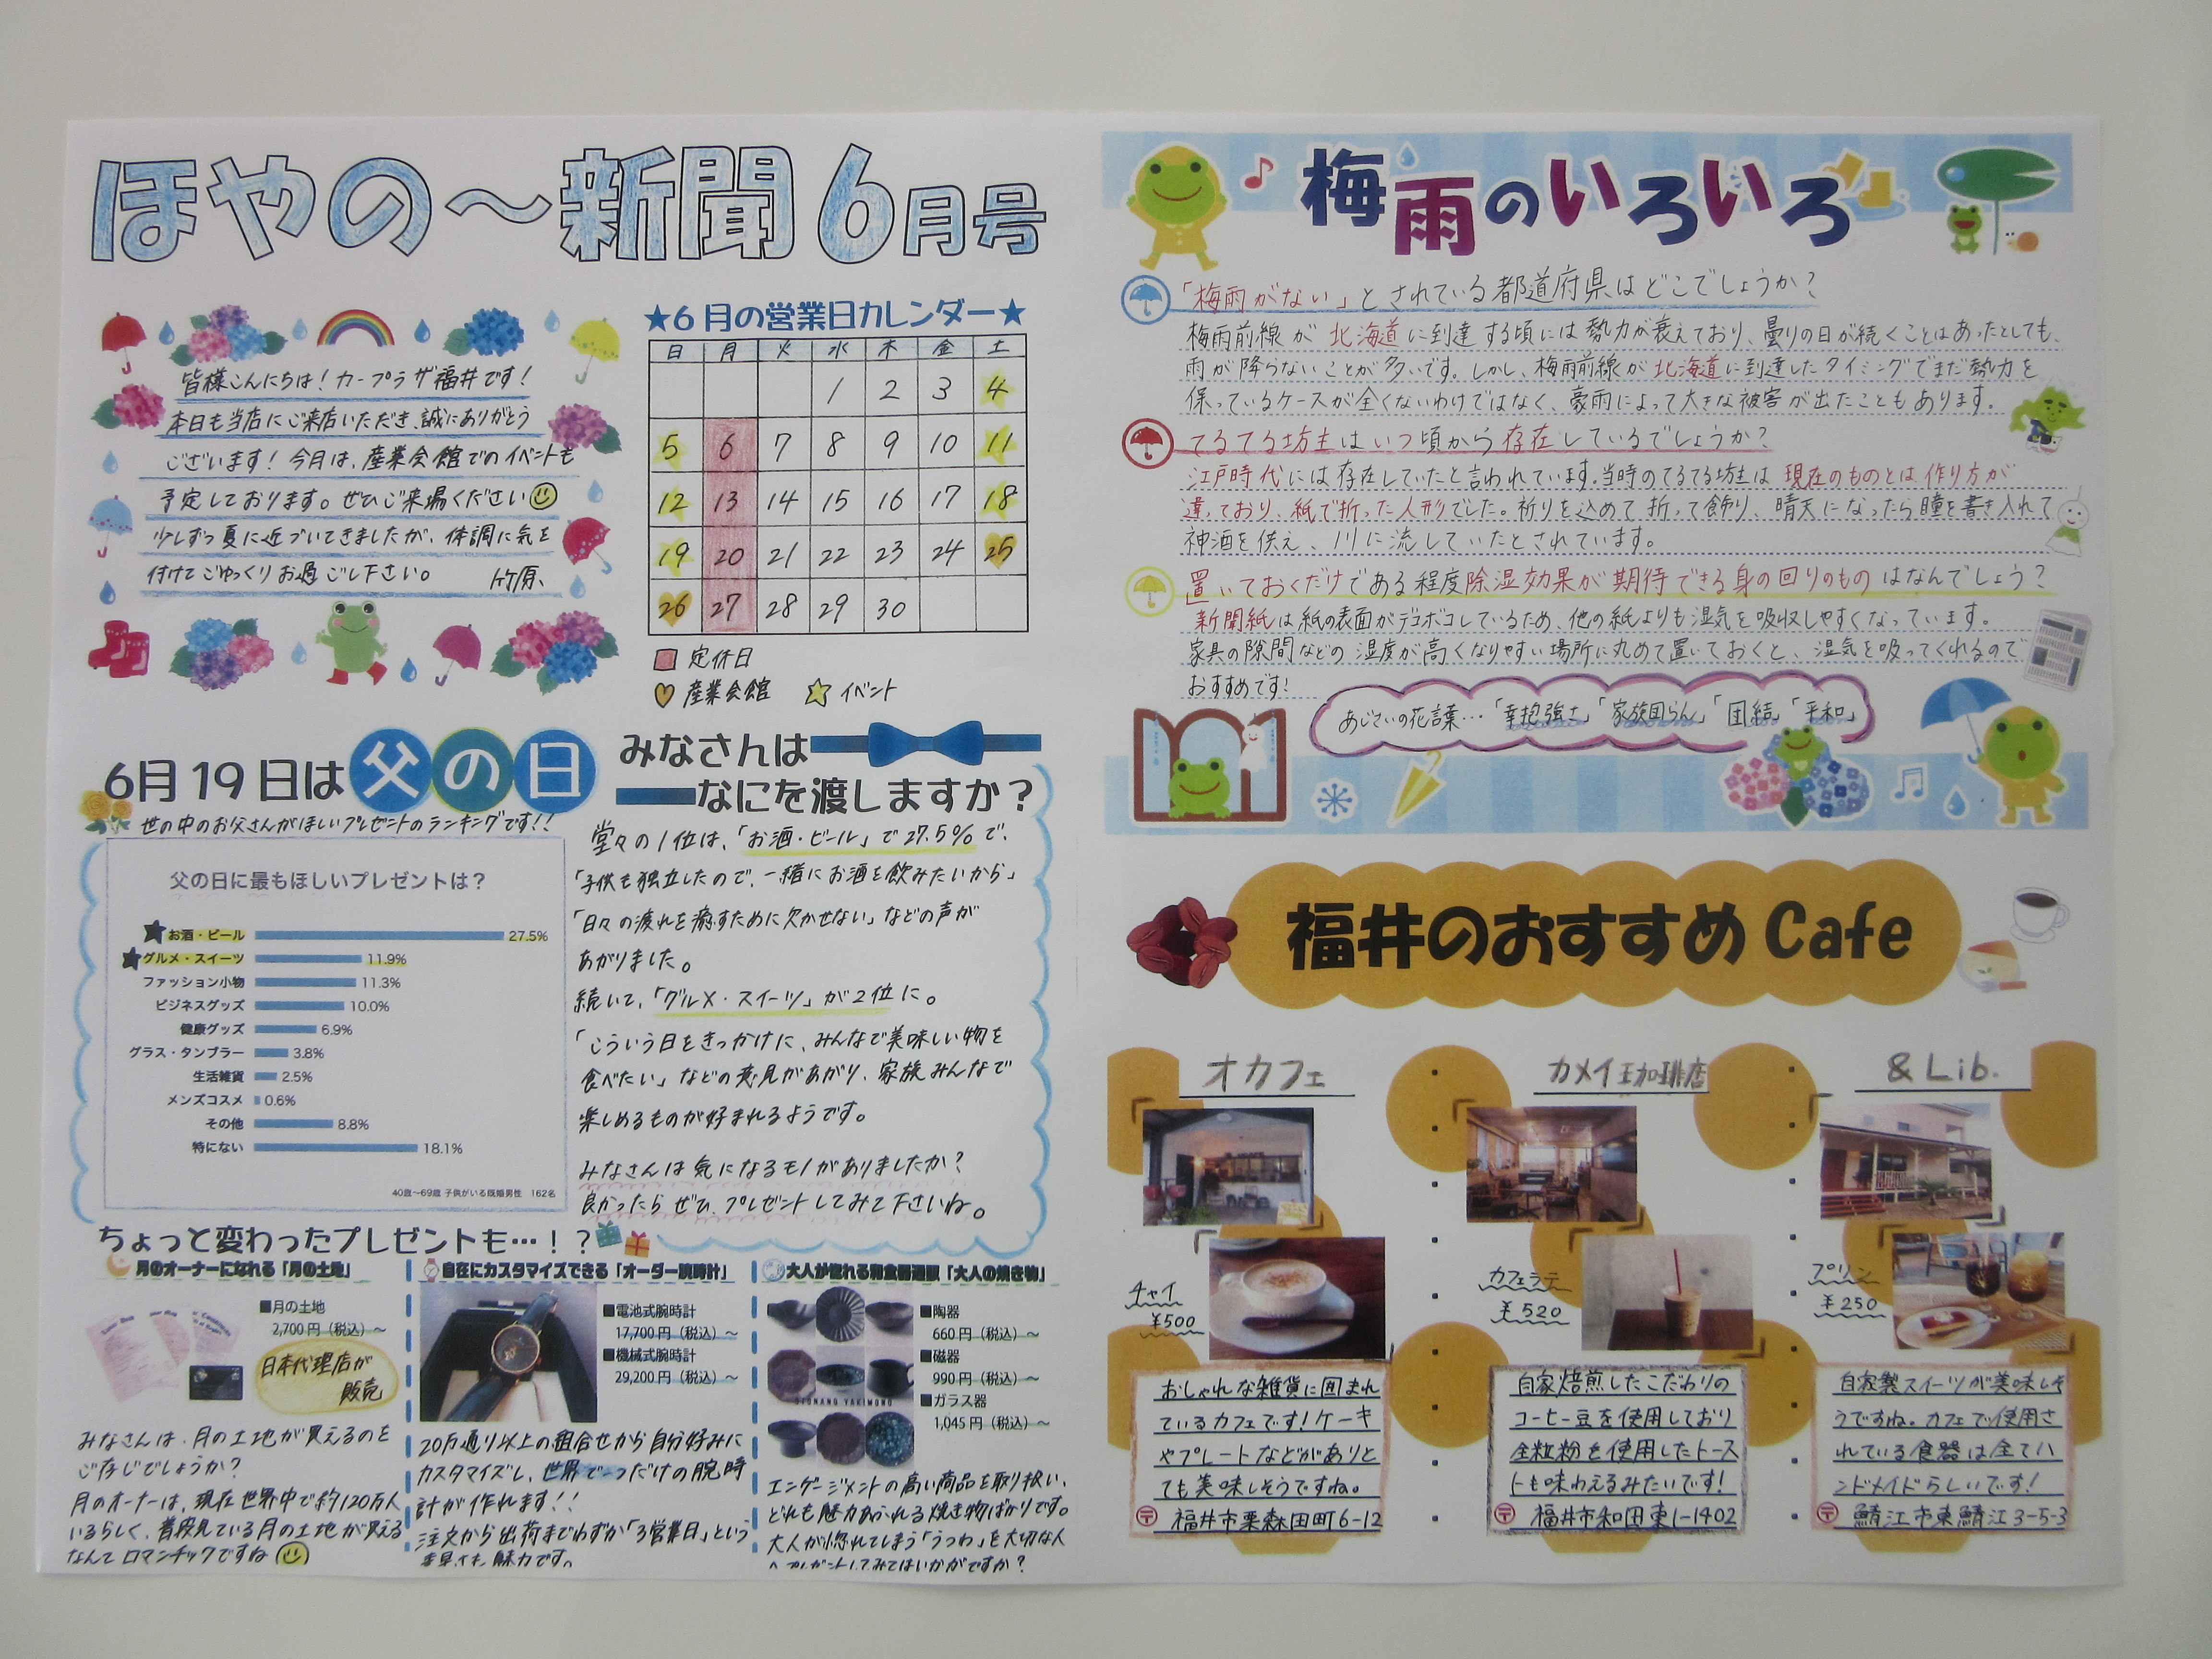 ほやの～新聞 6月号
皆様こんにちは！カープラザ福井です！
本日も当店にご来店いただき、誠にありがとう
ございます！今月は、産業会館でのイベントも
予定しております。ぜひご来場ください
少しずつ夏に近づいてきましたが、体調に気を
付けてごゆっくりお過ごし下さい。 竹原、
★6月の営業日カレンダー★
日 月 火 水 木 金 土
1 2 3 4
5 6 7 8 9 10 11
12 13 14 15 16 17 18
19 20 21 22 23 24 25
26 27 28 29 30
定休日
産業会館 イベント
6月19日は父の日
みなさんは
なにを渡しますか？
世の中のお父さんがほしいプレゼントのランキングです！！
父の日に最もほしいプレゼントは？
お酒・ビール 27.5%
グルメ・スイーツ 11.9%
ファッション小物 11.3%
ビジネスグッズ 10.0%
健康グッズ 6.9%
グラス・タンブラー 3.8%
生活雑貨 2.5%
メンズコスメ 0.6%
その他 8.8%
特にない 18.1%
40歳～69歳 子供がいる既婚男性 162名
堂々の1位は、「お酒・ビール」で27.5%で、
「子供も独立したので、一緒にお酒を飲みたいから」
「日々の疲れを癒すために欠かせない」などの声が
あがりました。
続いて、「グルメ・スイーツ」が2位に。
「こういう日をきっかけに、みんなで美味しい物を
食べたい」などの意見があがり、家族みんなで
楽しめるものが好まれるようです。
みなさんは気になるモノがありましたか？
良かったらぜひ、プレゼントしてみて下さいね。
ちょっと変わったプレゼントも…！？
月のオーナーになれる「月の土地」
■月の土地
2,700円（税込）～
日本代理店が
販売
みなさんは、月の土地が買えるのを
ご存じでしょうか？
月のオーナーは、現在世界中で約120万人
いるらしく、普段見ている月の土地が買える
なんてロマンチックですね
自在にカスタマイズできる「オーダー腕時計」
■電池式腕時計
17,700円（税込）～
■機械式腕時計
29,200円（税込）～
20万通り以上の組合せから自分好みに
カスタマイズし、世界で一つだけの腕時
計が作れます！！
注文から出荷までわずか「3営業日」という
素早さも魅力です。
大人が惚れる和食器通販「大人の焼き物」
OTONANO YAKIMONO
■陶器
660円（税込）～
■磁器
990円（税込）～
■ガラス器
1,045円（税込）～
エンゲージメントの高い商品を取り扱い、
どれも魅力あふれる焼き物ばかりです。
大人が惚れてしまう「うつわ」を大切な人
へプレゼントしてみてはいかがですか？
梅雨のいろいろ
「梅雨がない」とされている都道府県はどこでしょうか？
梅雨前線が北海道に到達する頃には勢力が衰えており、曇りの日が続くことはあったとしても、
雨が降らないことが多いです。しかし、梅雨前線が北海道に到達したタイミングでまだ勢力を
保っているケースが全くないわけではなく、豪雨によって大きな被害が出たこともあります。
てるてる坊主はいつ頃から存在しているでしょうか？
江戸時代には存在していたと言われています。当時のてるてる坊主は現在のものとは作り方が
違っており、紙で折った人形でした。祈りを込めて折って飾り、晴天になったら瞳を書き入れて
神酒を供え、川に流していたとされています。
置いておくだけである程度除湿効果が期待できる身の回りのものはなんでしょう？
新聞紙は紙の表面がデコボコしているため、他の紙よりも湿気を吸収しやすくなっています。
家具の隙間などの湿度が高くなりやすい場所に丸めて置いておくと、湿気を吸ってくれるので
おすすめです！
あじさいの花言葉…「辛抱強さ」「家族団らん」「団結」「平和」
福井のおすすめCafe
オカフェ
チャイ
¥500
おしゃれな雑貨に囲まれ
ているカフェです！ケーキ
やプレートなどがありと
ても美味しそうですね。
〒 福井市栗森田町6-12
カメイ珈琲店
カフェラテ
¥520
自家焙煎したこだわりの
コーヒー豆を使用しており
全粒粉を使用したトース
トも味わえるみたいです！
〒 福井市和田東1-1402
&Lib.
プリン
¥250
自家製スイーツが美味しそ
うですね。カフェで使用さ
れている食器は全てハ
ンドメイドらしいです！
〒 鯖江市東鯖江3-5-3